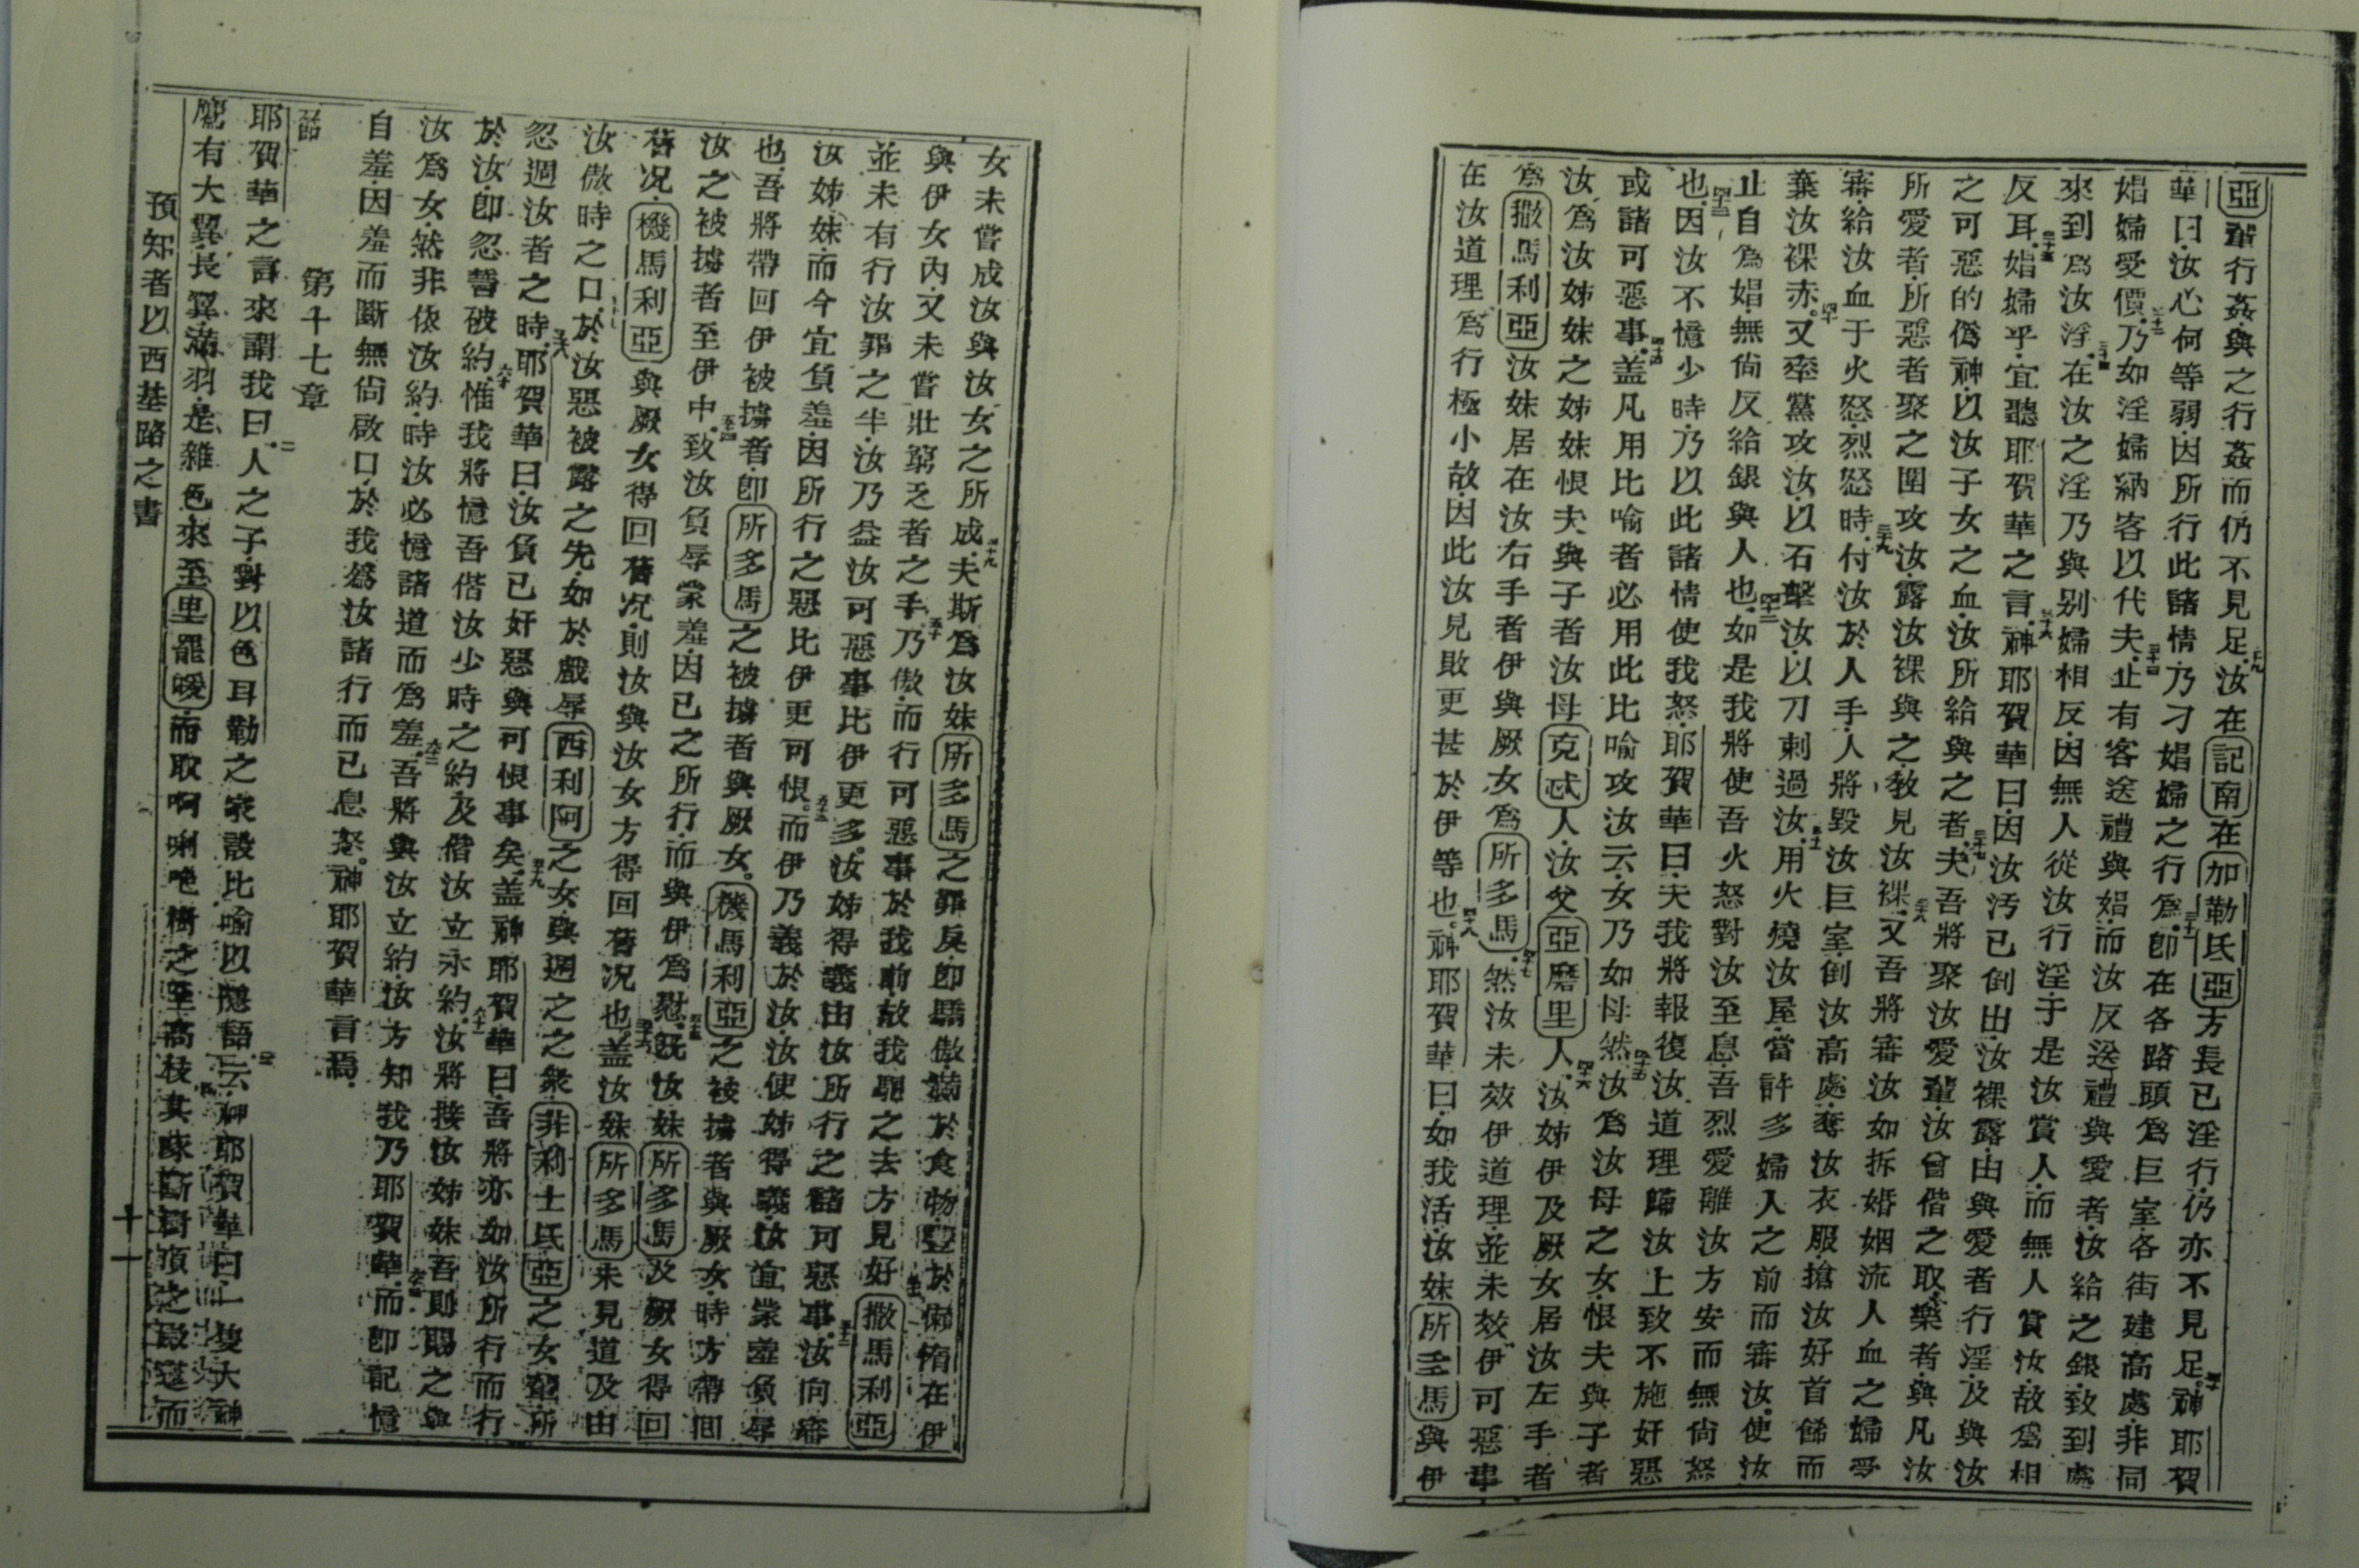 亞輩行姦與之行姦而仍不見足汝在記南在加勒氐亞方長已淫行仍亦不見足神耶賀
華曰汝心何等弱因所行此諸情乃刁娼婦之行爲卽在各路頭爲巨室各街建高處非同
娼婦愛價乃如淫婦納客以代夫止有客送禮與娼而汝反送禮與愛者汝給之銀致到處
來到爲汝淫在汝之淫乃與別婦相反因無人從汝行淫于是汝賞人而無人賞汝故爲相
反耳娼婦乎宜聽耶賀華之言神耶賀華曰因汝汚已倒出汝裸露由與愛者行淫及與汝
之可惡的僞神以汝子女之血汝所給與之者夫吾將聚汝愛輩汝曾偕之取樂者與凡汝
所愛者所惡者聚之圍攻汝露汝裸與之敎見汝裸又吾將審汝如拆婚姻流人血之婦受
審給汝血于火怒烈怒時付汝於人手人將毀汝巨室倒汝高處奪汝衣服搶汝好首餙而
棄汝裸赤又率黨攻汝以石擊汝以刀刺過汝用火燒汝屋當許多婦人之前而審汝使汝
止自爲娼無尙反給銀與人也如是我將使吾火怒對汝至息吾烈愛離汝方安而無尙怒
也因汝不憶少時乃以此諸情使我怒耶賀華曰夫我將報復汝道理歸汝上致不施奸惡
或諸可惡事蓋凡用比喻者必用此比喻攻汝云女乃如母然汝爲汝母之女恨夫與子者
汝爲汝姊妹之姊妹恨夫與子者汝母克忒人汝父亞磨里人汝姊伊及厥女居汝左手者
爲撒馬利亞汝妹居在汝右手者伊與厥女爲所多馬然汝未效伊道理並未效伊可惡事
在汝道理爲行極小故因此汝見敗更甚於伊等也神耶賀華曰如我活汝妹所多馬與伊
女未嘗成汝與汝女之所成夫斯爲汝妹所多馬之罪反卽驕傲滿於食物暨於懶惰在伊
與伊女內又未嘗壯窮乏者之手乃傲而行可惡事於我前故我取之去方見好撒馬利亞
並未有行汝罪之半汝乃益汝可惡事比伊更多汝姊得義由汝所行之諸可惡事汝向審
汝姊妹而今宜負羞因所行之惡比伊更可恨而伊乃義於汝汝使姊得義汝宜蒙羞負辱
也吾將帶回伊被擄者卽所多馬之被擄者與厥女機馬利亞之被擄者與厥女時方帶回
汝之被擄者至伊中致汝負辱蒙羞因已之所行而與伊爲慰旣汝妹所多馬及厥女得回
舊况機馬利亞與厥女得回舊况則汝與汝女方得回舊况也蓋汝妹所多馬未見道及由
汝傲時之口於汝惡被露之先如於戲辱西利阿之女與週之之衆非利士氐亞之女輩所
忽週汝者之時耶賀華曰汝負已奸惡與可恨事矣蓋神耶賀華曰吾將亦如汝所行而行
於汝卽忽誓破約惟我將憶吾偕汝少時之約及偕汝立永約汝將接汝姊妹吾則賜之與
汝爲女然非依汝約時汝必憶諸道而爲羞吾將與汝立約汝方知我乃耶賀華而卽記憶
自羞因羞而斷無尙啟口於我爲汝諸行而已息怒神耶賀華言焉
節 第十七章
耶賀華之言來謂我曰人之子對以色耳勒之家設比喻以隱語云神耶賀華曰一隻大
鷹有大翼長翼滿羽是雜色來至里罷嗳而取啊唎吔樹之至高枝其
預知者以西基路之書 十一